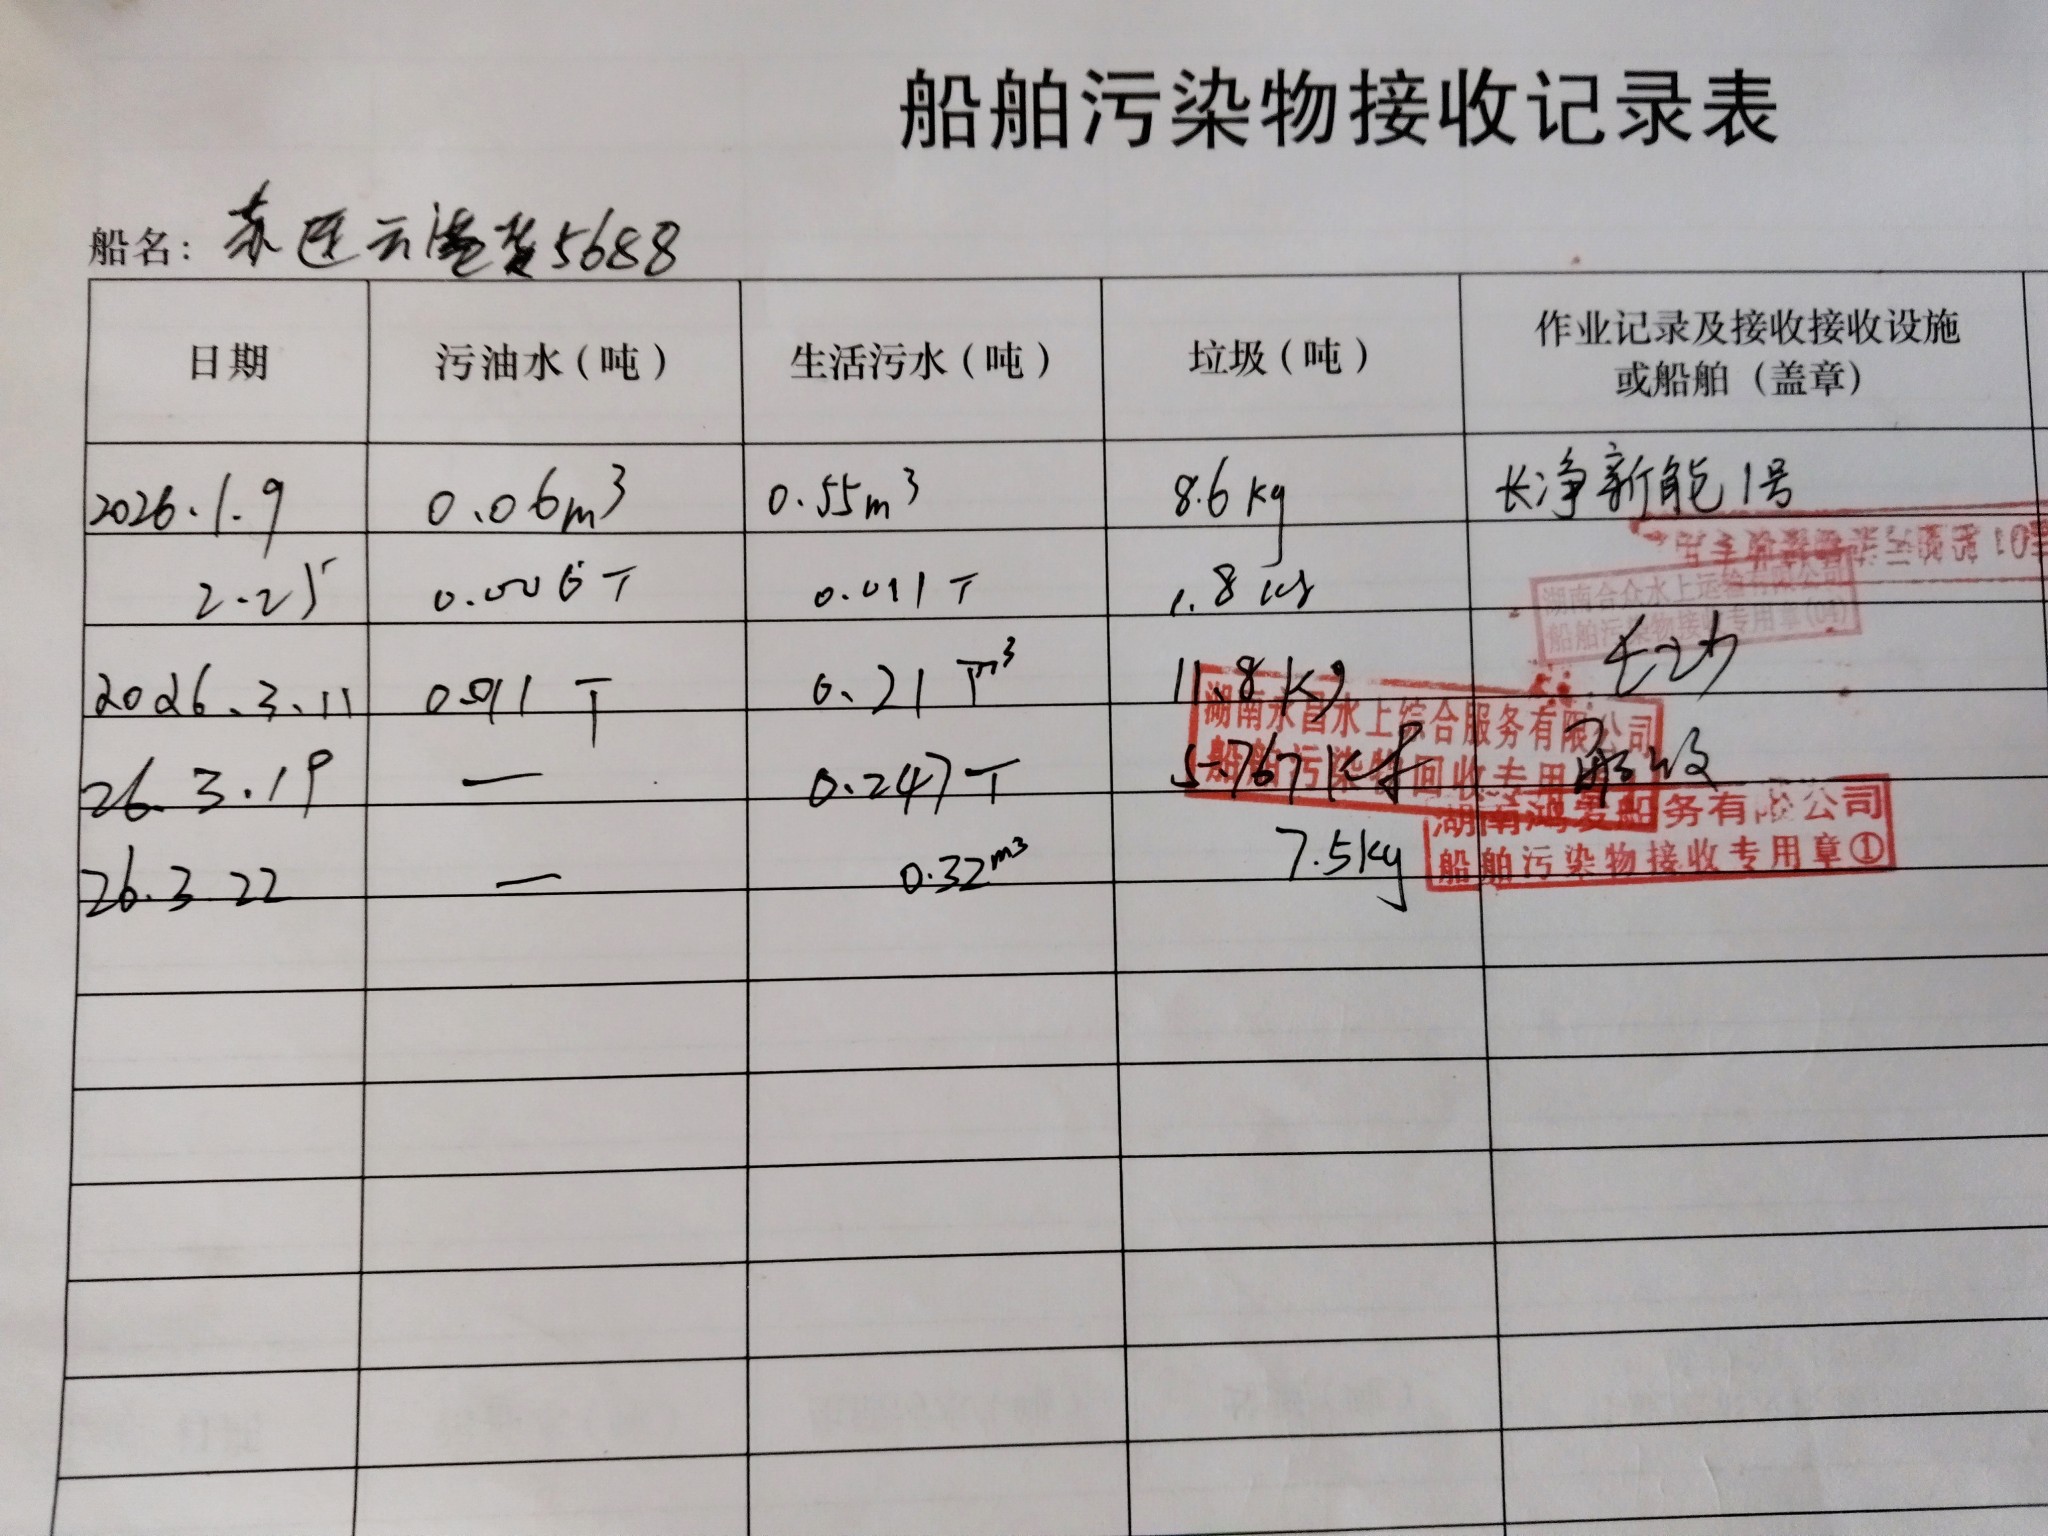 船舶污染物接收记录表
船名：苏连云港货5688
日期 污油水（吨） 生活污水（吨） 垃圾（吨） 作业记录及接收接收设施
或船舶（盖章）
2026.1.9 0.06m³ 0.55m³ 8.6kg 长净新能1号
2.25 0.006T 0.011T 1.8kg
湖南合众水上运输有限公司
船舶污染物接收专用章(04)
2026.3.11 T 0.21 11.8kg
湖南永昌水上综合服务有限公司
船舶污染物回收专用
26.3.19 — 0.247T 5.767
湖南鸿爱船务有限公司
船舶污染物接收专用章①
26.3.22 — 0.32m³ 7.5kg